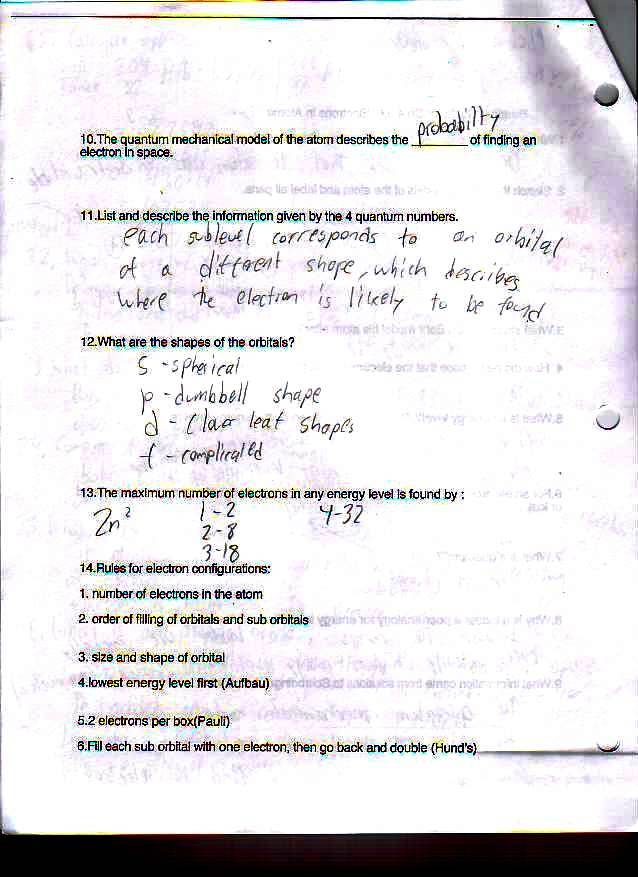 10.The quantum mechanical model of the atom describes the probability of finding an
electron in space.
11.List and describe the information given by the 4 quantum numbers.
each sublevel corresponds to an orbital
of a different shape, which describes
where the electron is likely to be found
12.What are the shapes of the orbitals?
S - spherical
p - dumbbell shape
d - Clover leaf shapes
f - complicated
13.The maximum number of electrons in any energy level is found by :
2n² 1-2 4-32
2-8
3-18
14.Rules for electron configurations:
1. number of electrons in the atom
2. order of filling of orbitals and sub orbitals
3. size and shape of orbital
4.lowest energy level first (Aufbau)
5.2 electrons per box(Pauli)
6.Fill each sub orbital with one electron, then go back and double (Hund's)